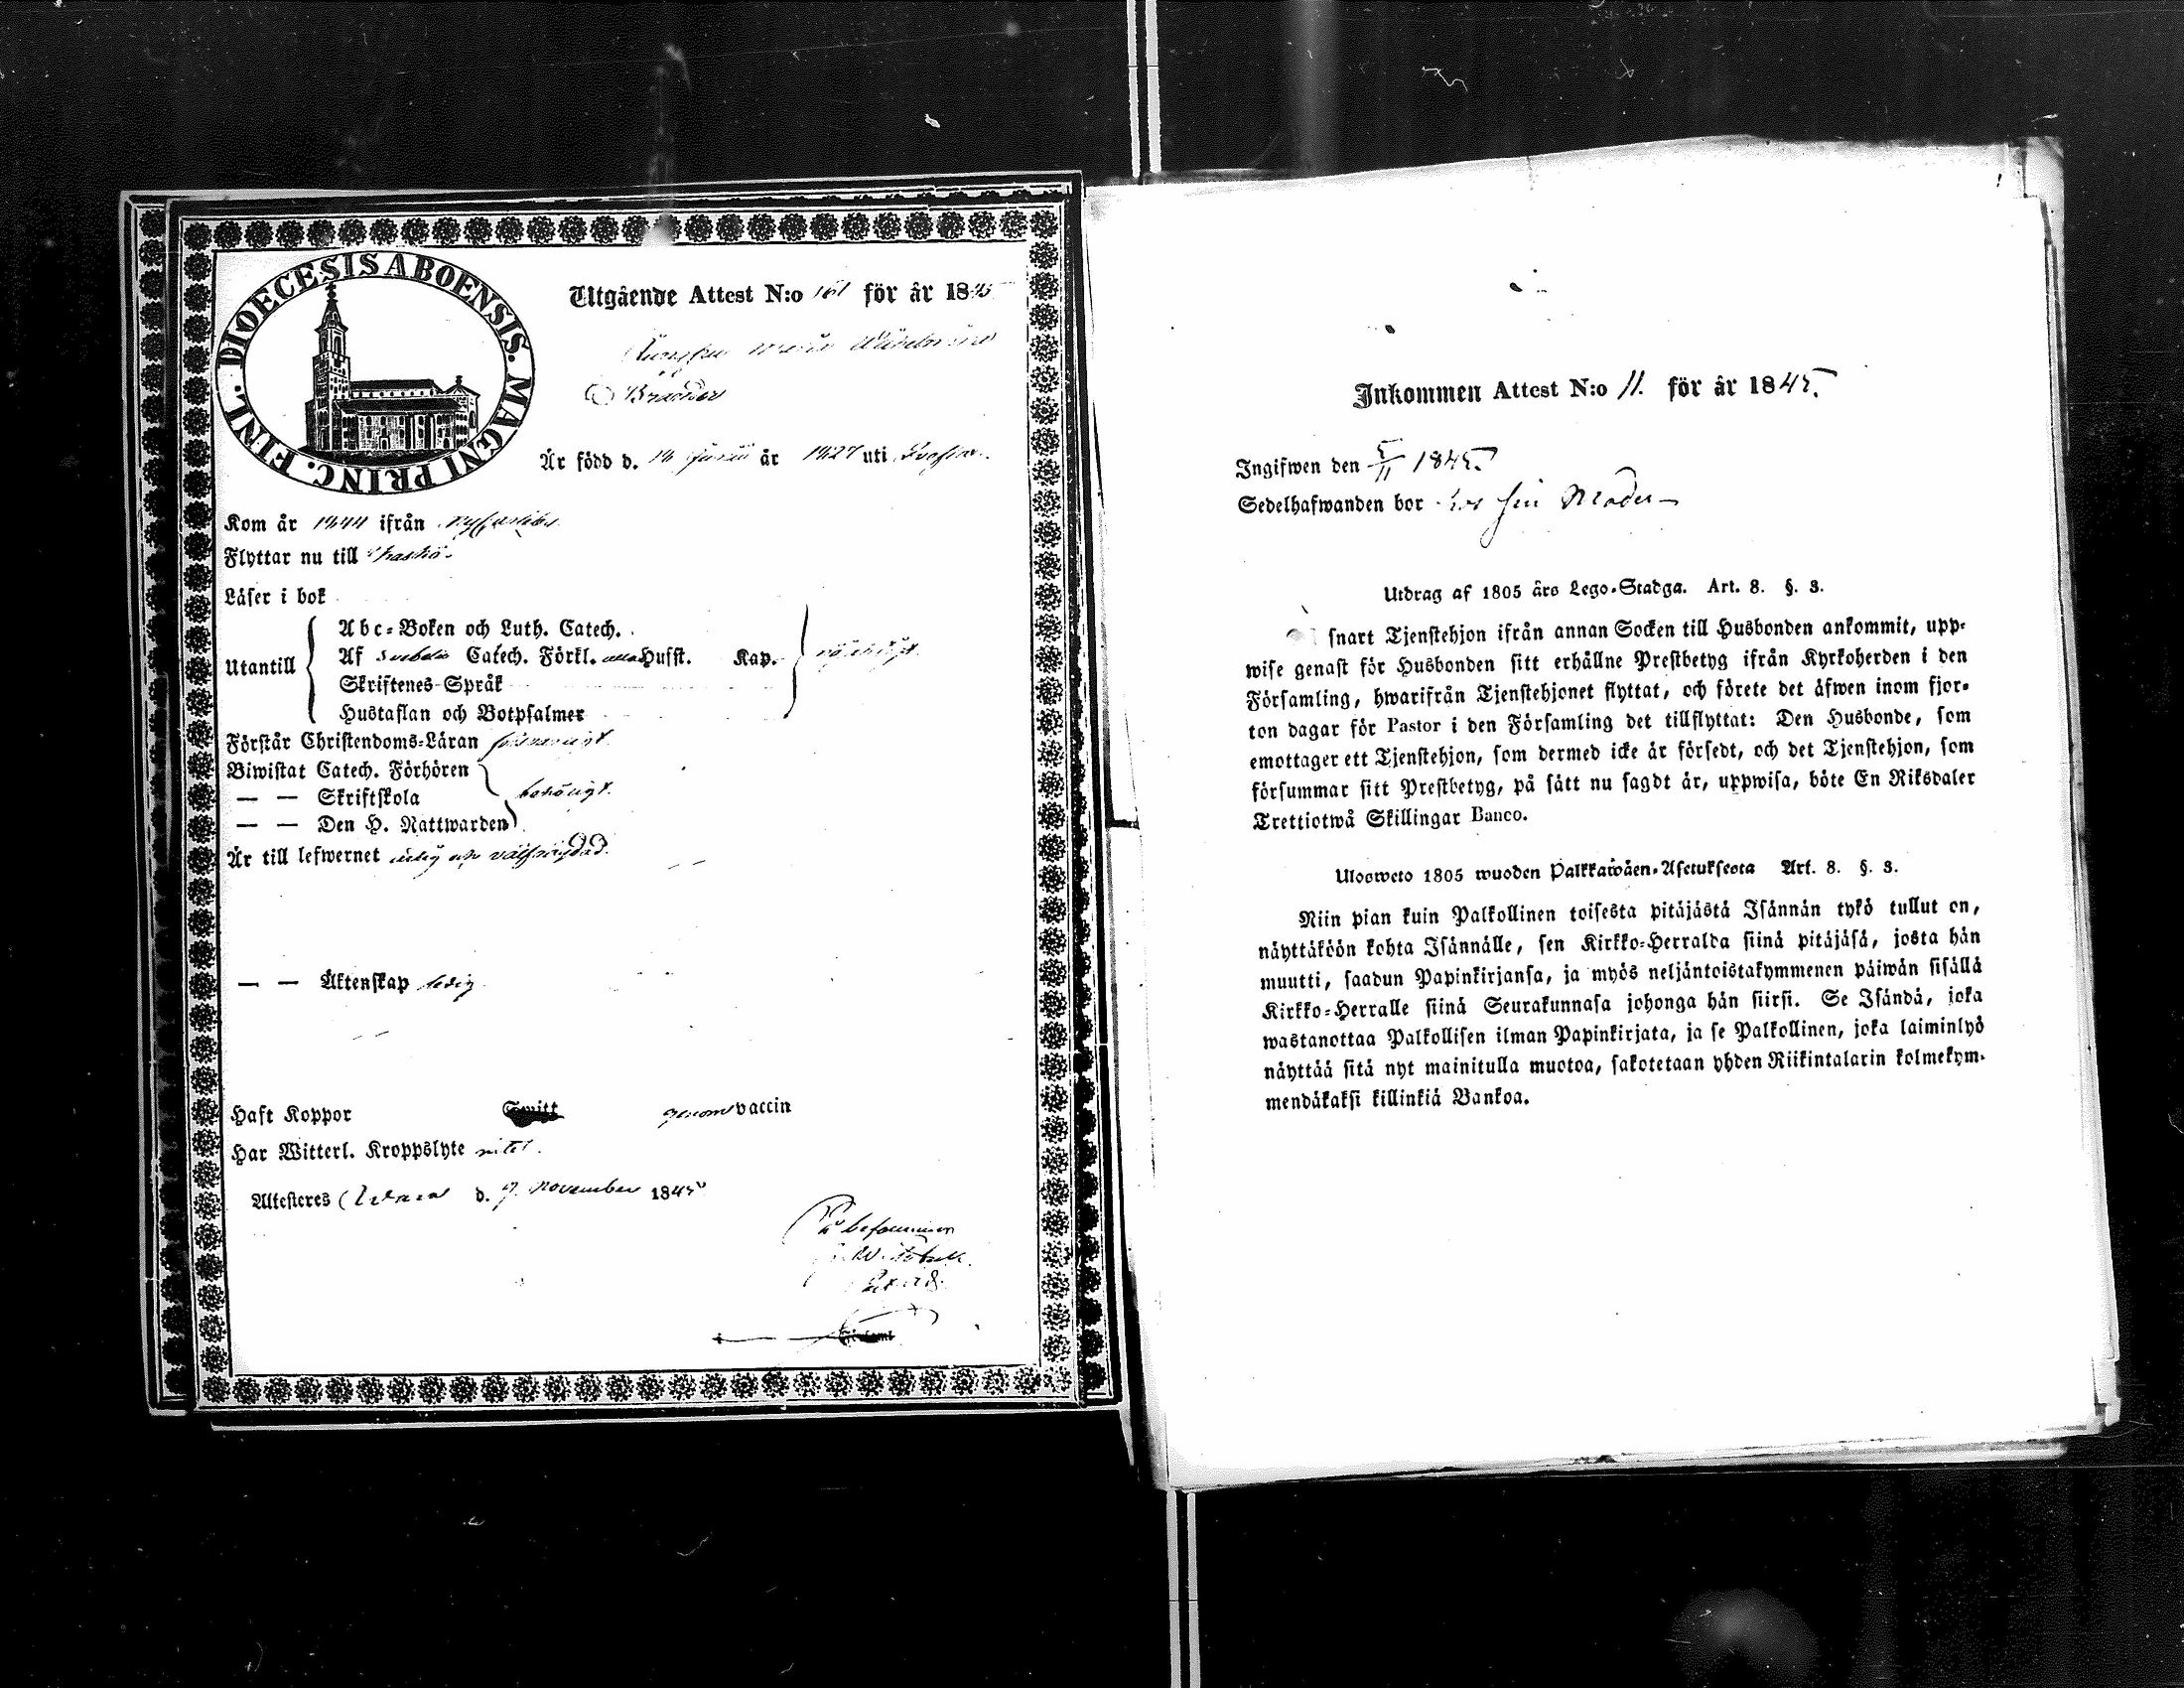 DIOECESIS ABOENSIS. MAGNI PRINC. FINL.
Utgående Attest N:o 161 för år 1845
Maria
Är född d. Junii år 1827 uti
Kom år 1844 ifrån
Flyttar nu till
Läser i bok
Utantill
Abc-Boken och Luth. Catech.
Af Svebelii Catech. Förkl. Husst. Kap.
Skriftenes-Språk
Hustaflan och Botpsalmer
Förstår Christendoms-Läran
Biwistat Catech. Förhören
— — Skriftskola behörigt
— — Den H. Nattwarden
Är till lefwernet
— — Äktenskap ledig
Haft Koppor genom vaccin
Har Witterl. Kroppslyte intet
Attesteres d. 7 November 1845
Inkommen Attest N:o 11. för år 1845.
Ingifwen den 5/11 1845.
Sedelhafwanden bor hos sin Moder
Utdrag af 1805 års Lego-Stadga. Art. 8. §. 3.
snart Tjenstehjon ifrån annan Socken till Husbonden ankommit, upp-
wise genast för Husbonden sitt erhållne Prestbetyg ifrån Kyrkoherden i den
Församling, hwarifrån Tjenstehjonet flyttat, och förete det äfwen inom fjor-
ton dagar för Pastor i den Församling det tillflyttat: Den Husbonde, som
emottager ett Tjenstehjon, som dermed icke är försedt, och det Tjenstehjon, som
försummar sitt Prestbetyg, på sätt nu sagdt är, uppwisa, böte En Riksdaler
Trettiotwå Skillingar Banco.
Ulosweto 1805 wuoden Palkkawäen-Asetuksesta Art. 8. §. 3.
Niin pian kuin Palkollinen toisesta pitäjästä Isännän tykö tullut on,
näyttäköön kohta Isännälle, sen Kirkko-Herralda siinä pitäjäsä, josta hän
muutti, saadun Papinkirjansa, ja myös neljäntoistakymmenen päiwän sisällä
Kirkko-Herralle siinä Seurakunnasa johonga hän siirsi. Se Isändä, joka
wastanottaa Palkollisen ilman Papinkirjata, ja se Palkollinen, joka laiminlyö
näyttää sitä nyt mainitulla muotoa, sakotetaan yhden Riikintalarin kolmekym-
mendäkaksi killinkiä Bankoa.